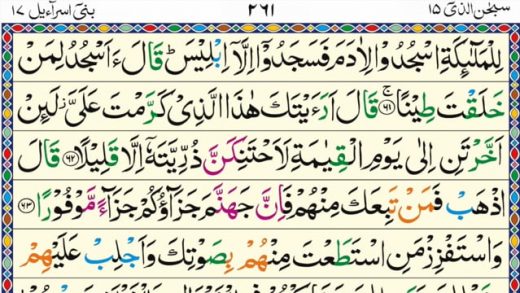 سبحن الذی ۱۵ ۲۶۱ بنی اسرآءیل ۱۷
لِلْمَلٰٓئِكَةِ اسْجُدُوْا لِاٰدَمَ فَسَجَدُوْۤا اِلَّاۤ اِبْلِیْسَ ؕ قَالَ ءَاَسْجُدُ لِمَنْ
خَلَقْتَ طِیْنًا ۚ‏﴿۶۱﴾ قَالَ اَرَءَیْتَكَ هٰذَا الَّذِیْ كَرَّمْتَ عَلَیَّ ز لَىِٕنْ
اَخَّرْتَنِ اِلٰی یَوْمِ الْقِیٰمَةِ لَاَحْتَنِكَنَّ ذُرِّیَّتَهٗۤ اِلَّا قَلِیْلًا ﴿۶۲﴾ قَالَ
اذْهَبْ فَمَنْ تَبِعَكَ مِنْهُمْ فَاِنَّ جَهَنَّمَ جَزَآؤُكُمْ جَزَآءً مَّوْفُوْرًا ﴿۶۳﴾
وَاسْتَفْزِزْ مَنِ اسْتَطَعْتَ مِنْهُمْ بِصَوْتِكَ وَاَجْلِبْ عَلَیْهِمْ